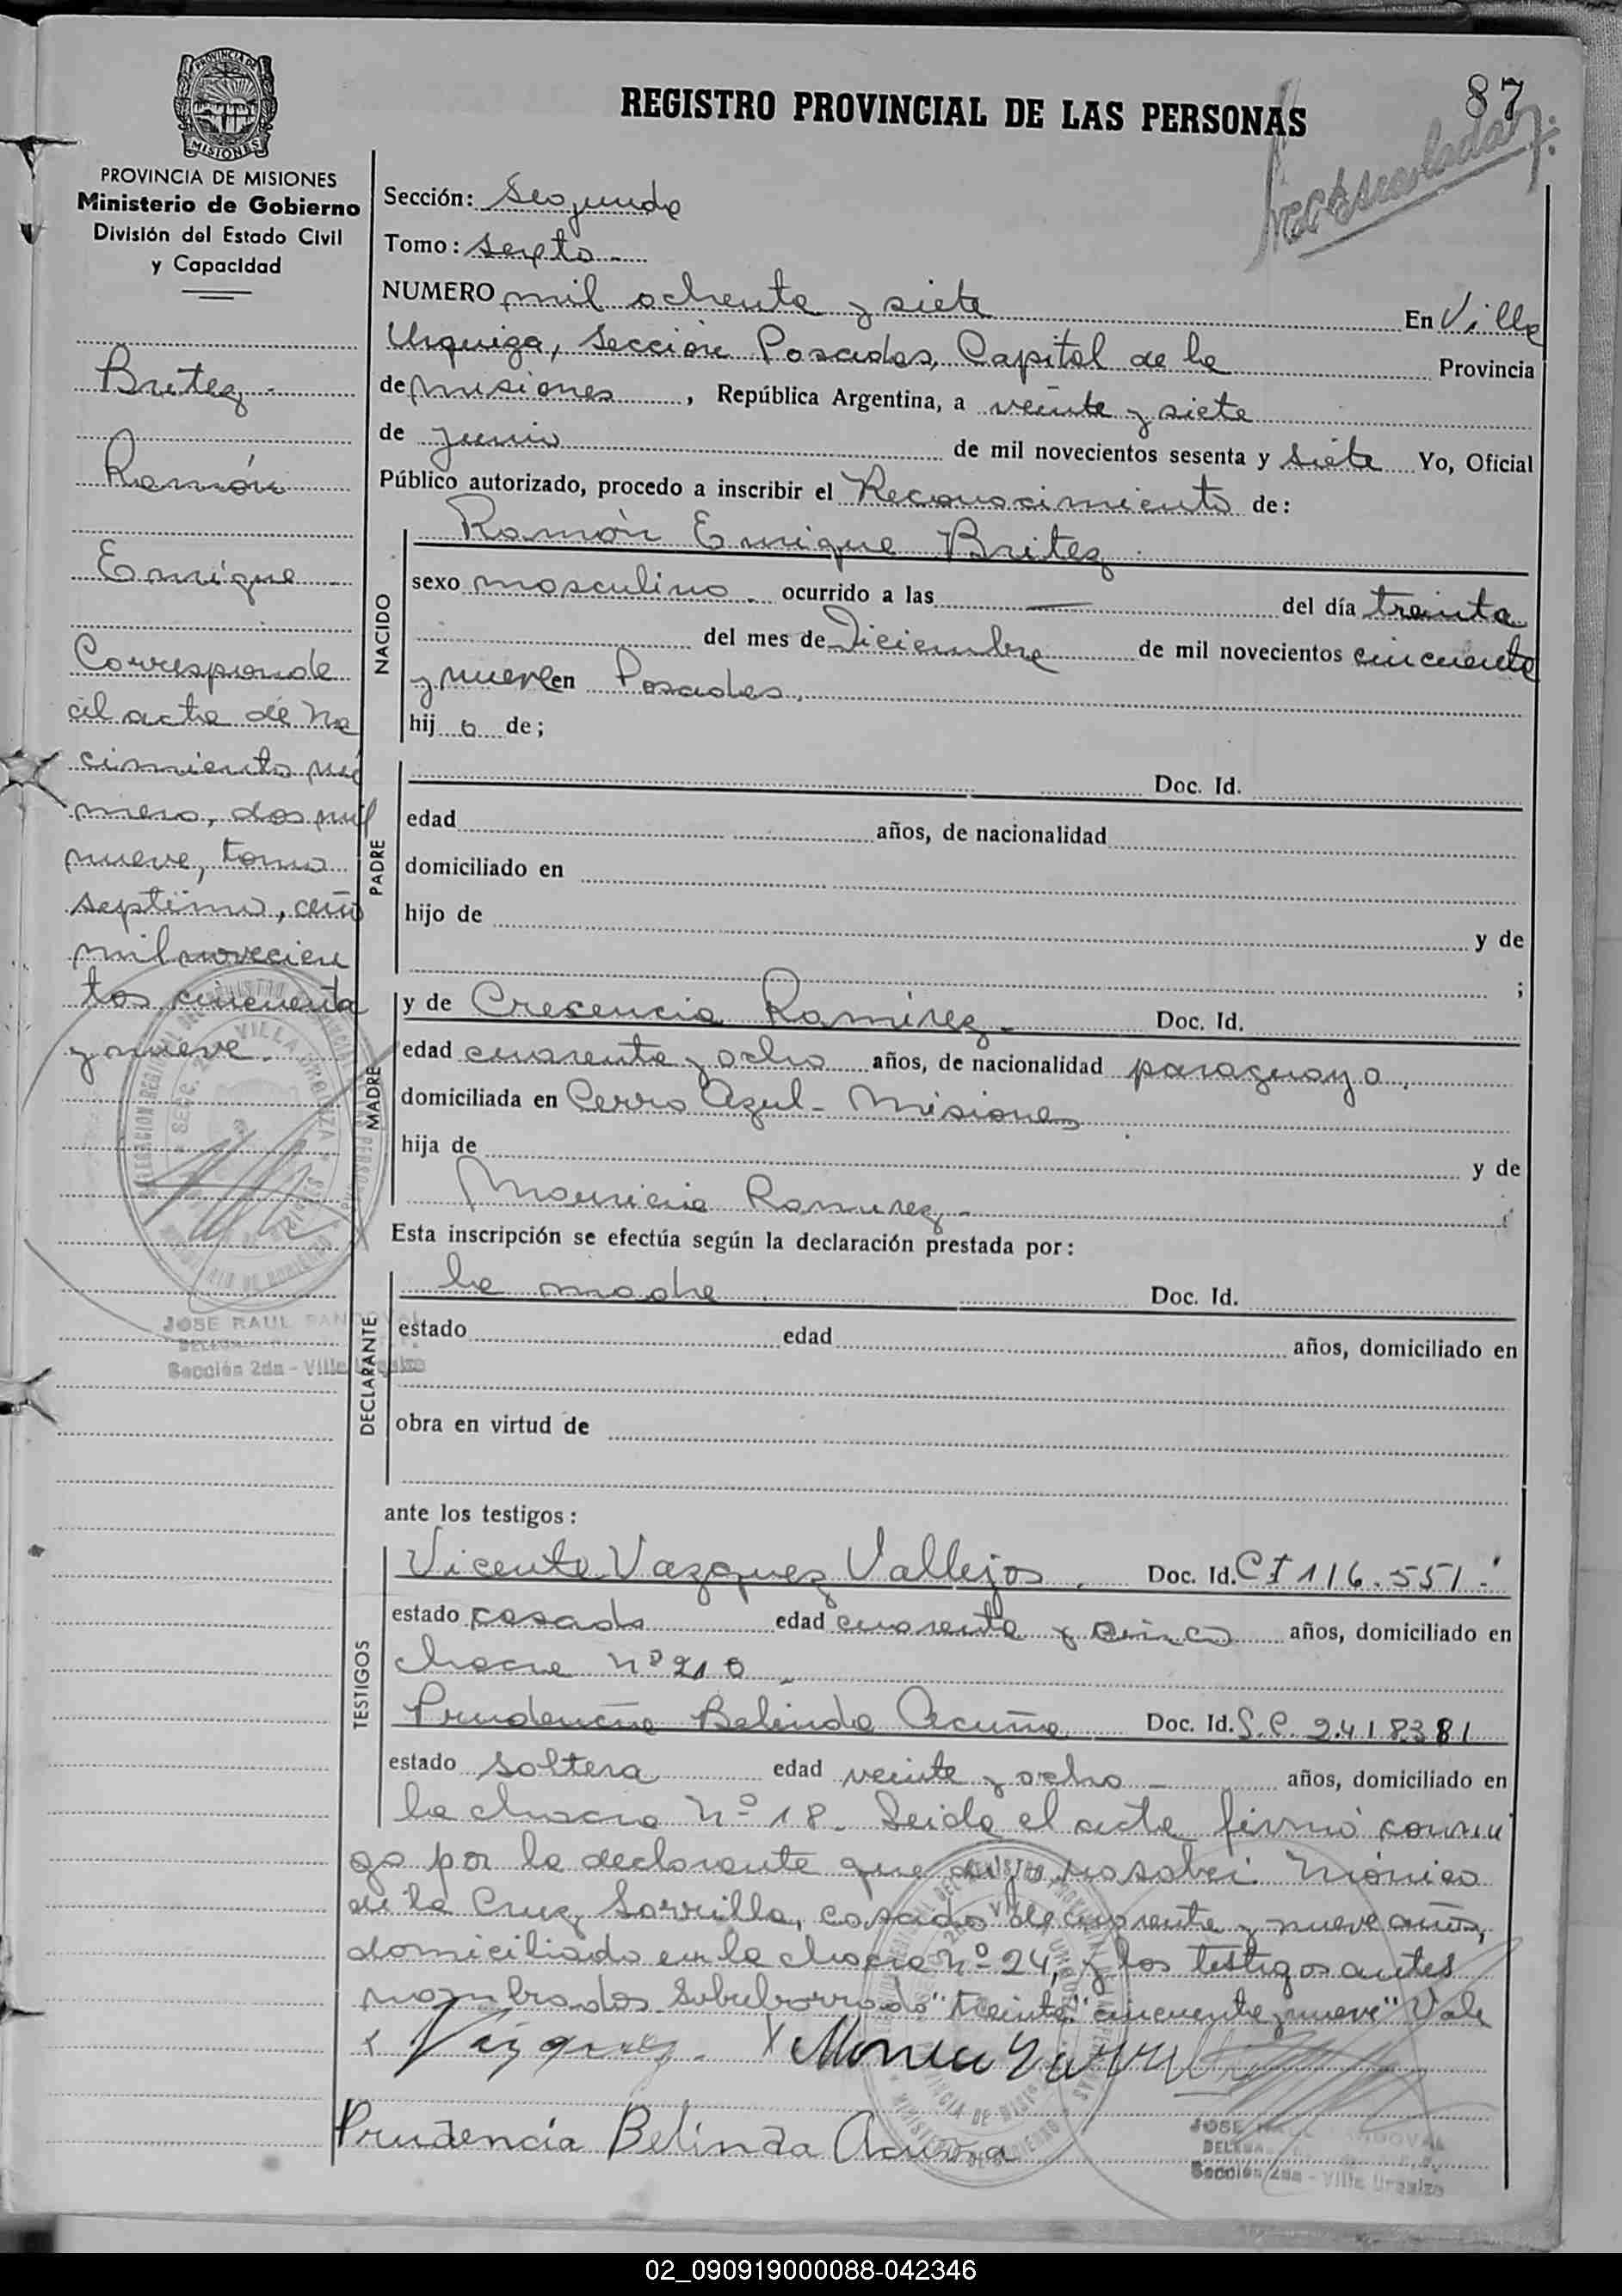 87
REGISTRO PROVINCIAL DE LAS PERSONAS
PROVINCIA DE MISIONES
Ministerio de Gobierno
División del Estado Civil
y Capacidad
Britez
Ramón
Enrique
Corresponde
al acta de na
cimiento nú
mero, dos mil
nueve, tomo
septimo, año
mil novecien
tos cincuenta
y nueve.
JOSE RAUL SANDOVAL
Sección 2da - Villa Urquiza
Sección: Segunda
Tomo: sexto
NUMERO mil ochenta y siete En Villa
Urquiza, Sección Posadas, Capital de la Provincia
de Misiones, República Argentina, a veinte y siete
de junio de mil novecientos sesenta y siete Yo, Oficial
Público autorizado, procedo a inscribir el Reconocimiento de:
NACIDO
Ramón Enrique Britez
sexo masculino. ocurrido a las — del día treinta
del mes de Diciembre de mil novecientos cincuenta
y nueve en Posadas,
hij o de;
PADRE
Doc. Id.
edad años, de nacionalidad
domiciliado en
hijo de y de
;
MADRE
y de Crecencia Ramírez - Doc. Id.
edad cuarenta y ocho años, de nacionalidad paraguaya.
domiciliada en Cerro Azul - Misiones
hija de y de
Mauricia Ramirez -
Esta inscripción se efectúa según la declaración prestada por:
DECLARANTE
la madre Doc. Id.
estado edad años, domiciliado en
obra en virtud de
ante los testigos:
TESTIGOS
Vicente Vazquez Vallejos. Doc. Id. CI 116.551.-
estado casado edad cuarenta y cinco años, domiciliado en
chacra nº 210
Prudencia Belinda Acuña Doc. Id. 2.418381
estado soltera edad veinte y ocho - años, domiciliado en
la chacra Nº 18. Leida el acta firmó conmi
go por la declarante que dijo no saber Mónico
de la Cruz Sorrilla, casado de cuarenta y nueve años,
domiciliado en la chacra nº 24, y los testigos antes
nombrados Sobreborrado "treinta" "cincuenta y nueve" Vale
Prudencia Belinda Acuña
JOSE RAUL SANDOVAL
Sección 2da - Villa Urquiza
02_090919000088-042346